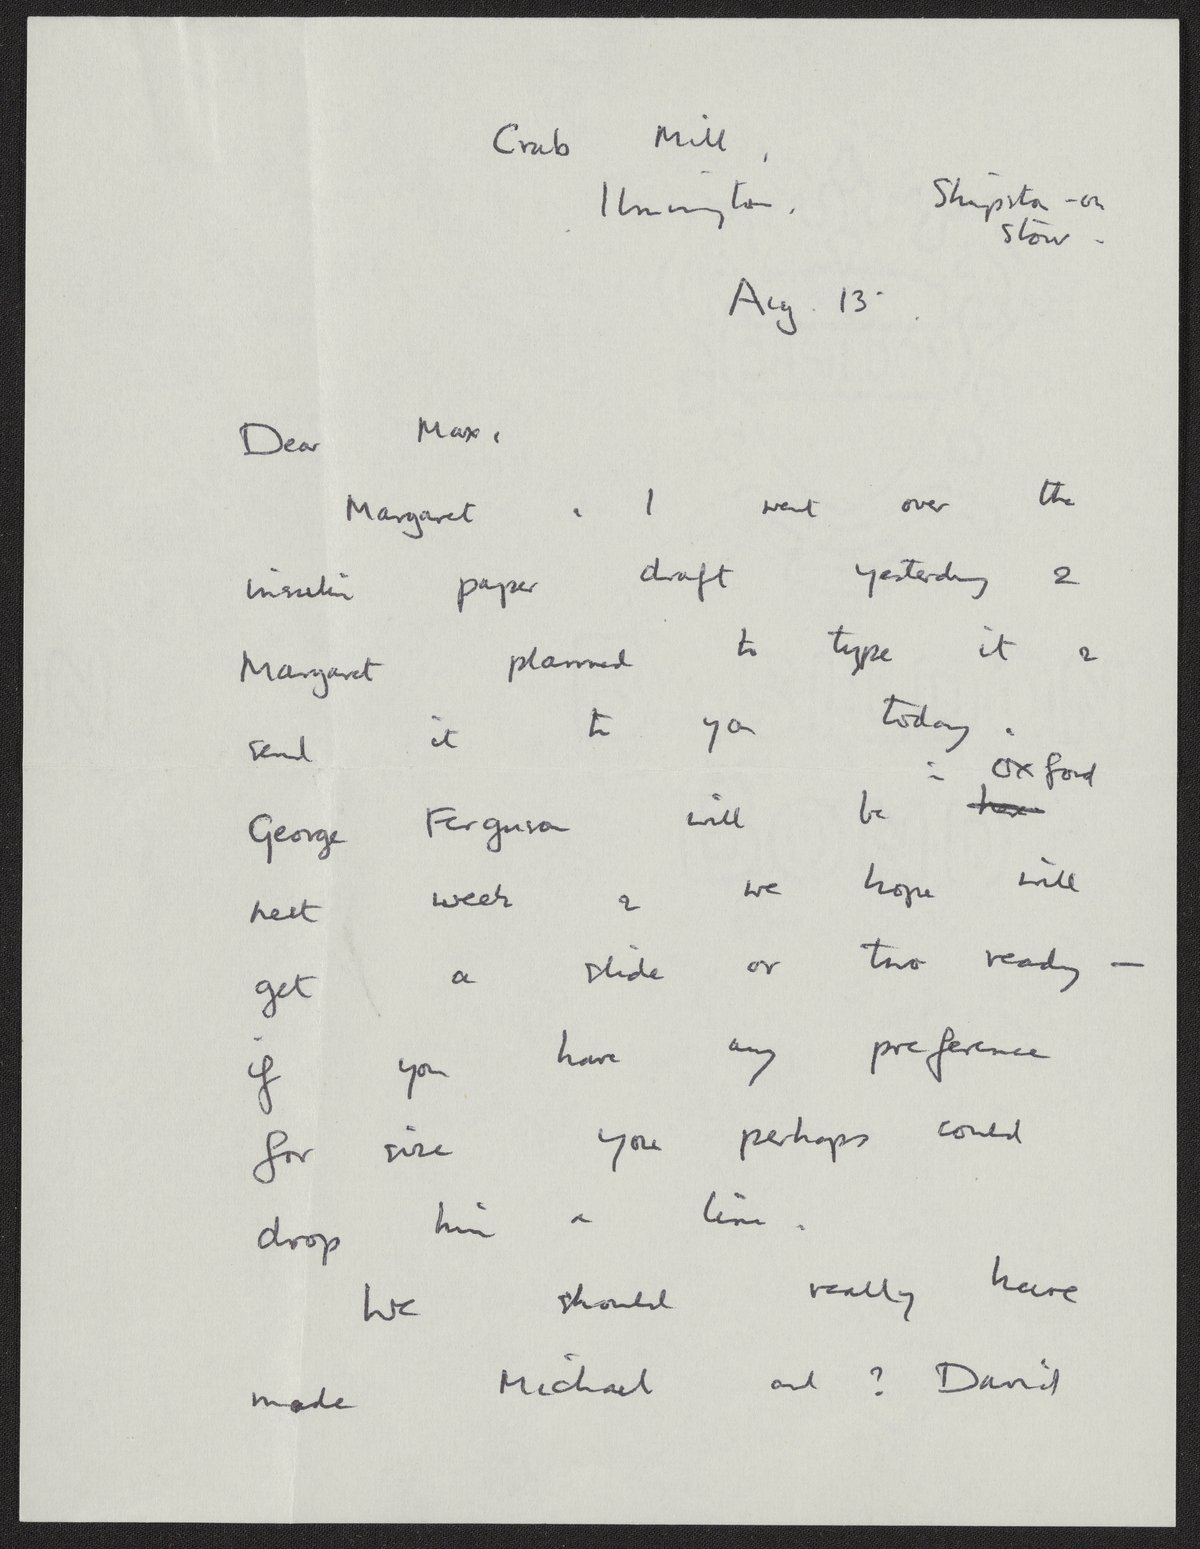 Crab Mill,
Ilmington. Shipston-on
Stour.
Aug. 13.
Dear Max,
Margaret & I went over the
insulin paper draft yesterday &
Margaret planned to type it &
send it to you today.
in Oxford
George Ferguson will be here
next week & we hope will
get a slide or two ready —
if you have any preference
for size you perhaps could
drop him a line.
We should really have
made Michael and ? David